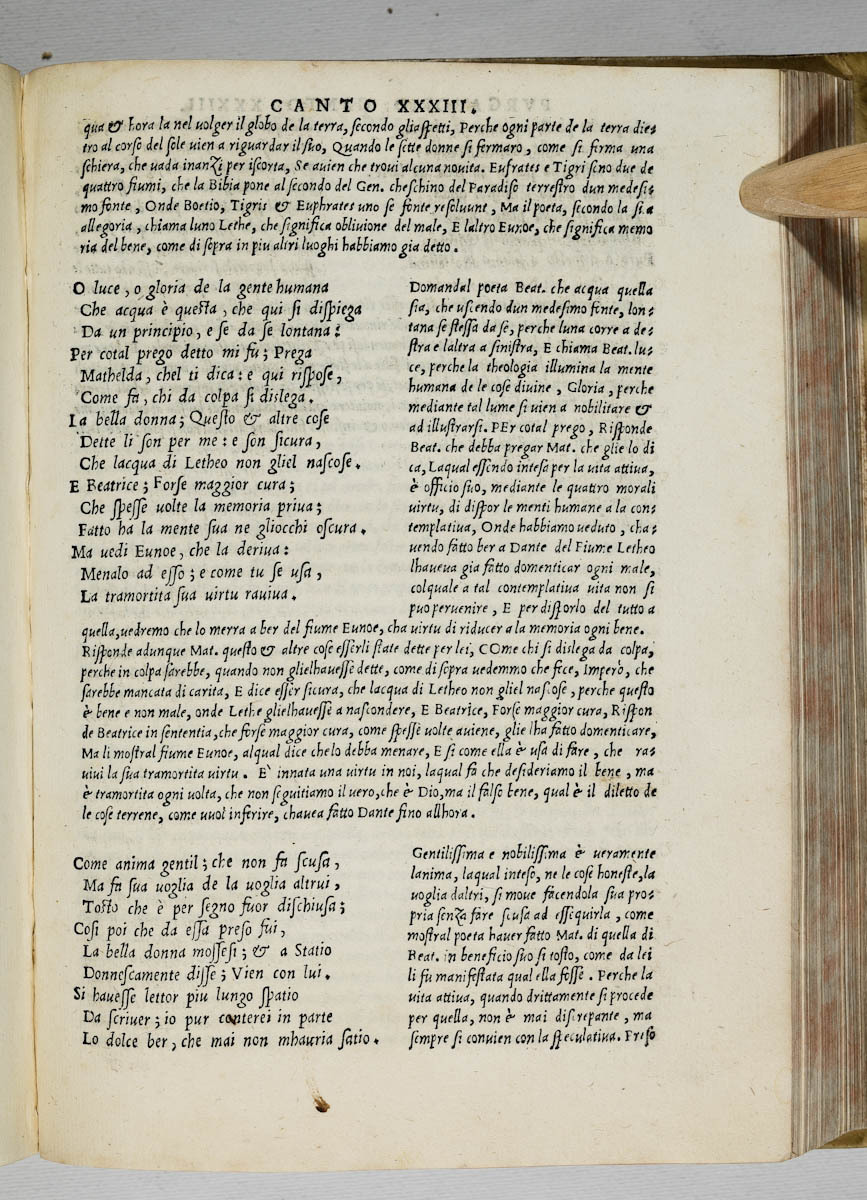 CANTO XXXIII.
qua & hora la nel uolger il globo de la terra, secondo gliaspetti, Perche ogni parte de la terra die-
tro al corso del sole uien a riguardar il suo, Quando le sette donne si fermaro, come si ferma una
schiera, che uada inanzi per iscorta, Se auien che troui alcuna nouita. Eufrates e Tigri sono due de
quattro fiumi, che la Bibia pone al secondo del Gen. cheschino del Paradiso terrestro dun medesi-
mo fonte, Onde Boetio, Tigris & Euphrates uno se fonte resoluunt, Ma il poeta, secondo la sua
allegoria, chiama luno Lethe, che significa obliuione del male, E laltro Eunoe, che significa memo
ria del bene, come di sopra in piu altri luoghi habbiamo gia detto.
O luce, o gloria de la gente humana
Che acqua è questa, che qui si dispiega
Da un principio, e se da se lontana?
Per cotal prego detto mi fu; Prega
Mathelda, chel ti dica: e qui rispose,
Come fa, chi da colpa si dislega.
La bella donna; Questo & altre cose
Dette li son per me: e son sicura,
Che lacqua di Letheo non gliel nascose.
E Beatrice; Forse maggior cura;
Che spesse uolte la memoria priua;
Fatto ha la mente sua ne gliocchi oscura.
Ma uedi Eunoe, che la deriua:
Menalo ad esso; e come tu se usa,
La tramortita sua uirtu rauiua.
Domandal poeta Beat. che acqua quella
sia, che uscendo dun medesimo fonte, lon-
tana se stessa da se, perche luna corre a de-
stra e laltra a sinistra, E chiama Beat. lu-
ce, perche la theologia illumina la mente
humana de le cose diuine, Gloria, perche
mediante tal lume si uien a nobilitare &
ad illustrarsi. PEr cotal prego, Risponde
Beat. che debba pregar Mat. che glie lo di
ca, Laqual essendo intesa per la uita attiua,
è officio suo, mediante le quattro morali
uirtu, di dispor le menti humane a la con-
templatiua, Onde habbiamo ueduto, cha-
uendo fatto ber a Dante del Fiume Letheo
lhaueua gia fatto domenticar ogni male,
colquale a tal contemplatiua uita non si
puo peruenire, E per disporlo del tutto a
quella, uedremo che lo merra a ber del fiume Eunoe, cha uirtu di riducer a la memoria ogni bene.
Risponde adunque Mat. questo & altre cose esserli state dette per lei, COme chi si dislega da colpa,
perche in colpa sarebbe, quando non glielhauesse dette, come di sopra uedemmo che fece, Imperò, che
sarebbe mancata di carita, E dice esser sicura, che lacqua di Letheo non gliel nascose, perche questo
è bene e non male, onde Lethe glielhauesse a nascondere, E Beatrice, Forse maggior cura, Rispon
de Beatrice in sententia, che forse maggior cura, come spesse uolte auiene, glie lha fatto domenticare,
Ma li mostral fiume Eunoe, alqual dice chelo debba menare, E si come ella è usa di fare, che ra-
uiui la sua tramortita uirtu. E' innata una uirtu in noi, laqual fa che desideriamo il bene, ma
è tramortita ogni uolta, che non seguitiamo il uero, che è Dio, ma il falso bene, qual è il diletto de
le cose terrene, come uuol inferire, chauea fatto Dante fino allhora.
Come anima gentil; che non fa scusa,
Ma fa sua uoglia de la uoglia altrui,
Tosto che è per segno fuor dischiusa;
Cosi poi che da essa preso fui,
La bella donna mossesi; & a Statio
Donnescamente disse; Vien con lui.
Si hauesse lettor piu lungo spatio
Da scriuer; io pur conterei in parte
Lo dolce ber, che mai non mhauria satio.
Gentilissima e nobilissima è ueramente
lanima, laqual inteso, ne le cose honeste, la
uoglia daltri, si moue facendola sua pro-
pria senza fare scusa ad essequirla, come
mostral poeta hauer fatto Mat. di quella di
Beat. in beneficio suo si tosto, come da lei
li fu manifestata qual ella fosse. Perche la
uita attiua, quando drittamente si procede
per quella, non è mai discrepante, ma
sempre si conuien con la speculatiua. Preso